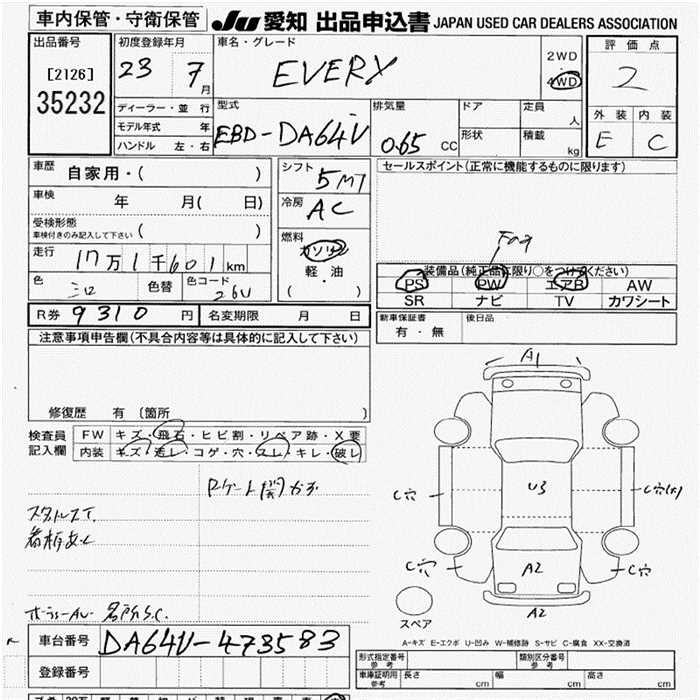 車内保管・守衛保管 JU 愛知 出品申込書 JAPAN USED CAR DEALERS ASSOCIATION
出品番号 初度登録年月 車名・グレード 2WD 評価点
[2126] 23 7月 EVERY 4WD 2
35232
ディーラー・並行 型式 排気量 ドア 定員 人 外装 内装
モデル年式 年 EBD-DA64V 0.65 CC 形状 積載 kg E C
ハンドル 左・右
車歴 自家用・( ) シフト 5MT セールスポイント(正常に機能するものに限ります)
車検 年 月( 日) 冷房 AC
受検形態 ( )
車検付きのみ記入して下さい
走行 17万1千601km 燃料 ガソリン
軽・油
( )
装備品(純正品に限り○をつけてください)
色 色替 色コード 26U PS PW エアB AW
SR ナビ TV カワシート
R券 9310 円 名変期限 月 日 新車保証書 有・無 後日品
注意事項申告欄(不具合内容等は具体的に記入して下さい)
修復歴 有 [箇所 ]
検査員 FW キズ・飛石・ヒビ割・リペア跡・X要
記入欄 内装 キズ・汚レ・コゲ・穴・スレ・キレ・破レ
A1
C穴 U3 C穴
看板あと
C穴 A2 C穴
A2
スペア
A-キズ E-エクボ U-凹み W-補修跡 S-サビ C-腐食 XX-交換済
車台番号 DA64V-473583
形式指定番号 参考 類別区分番号 参考
登録番号 車庫証明用 参考 長さ cm 幅 cm 高さ cm